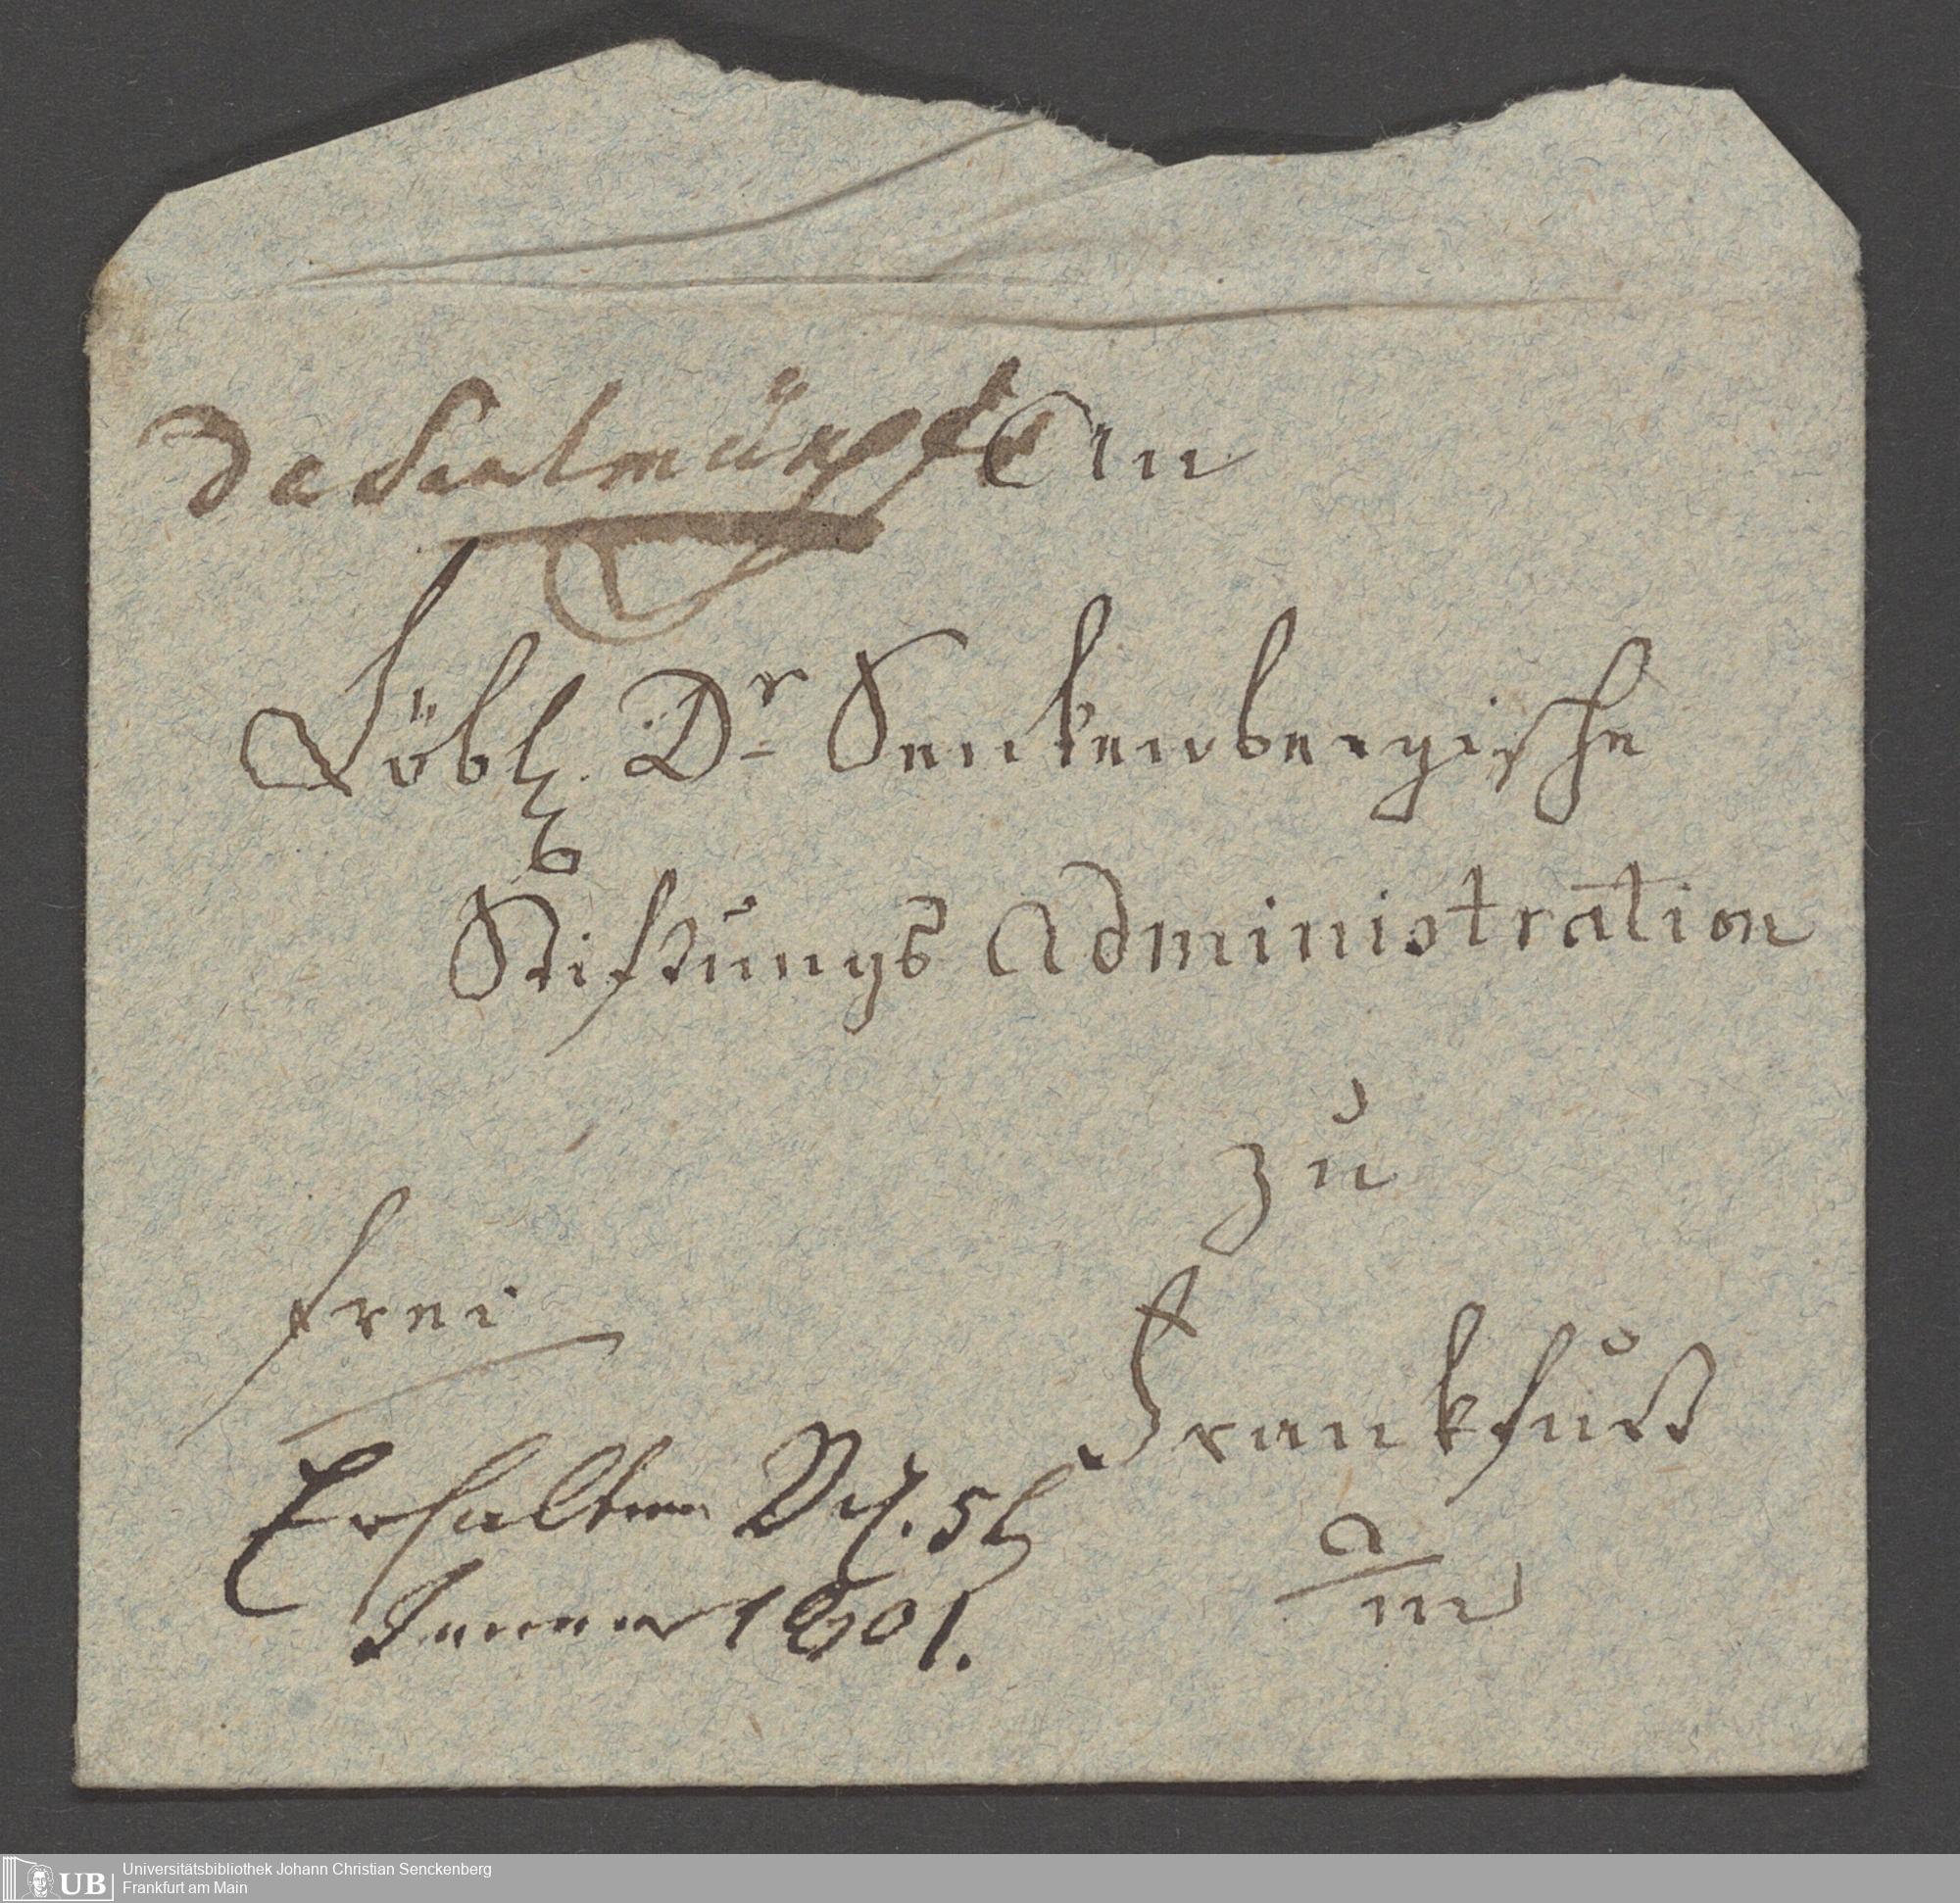 De Salmünster
An
Löbl. Dr Senkenbergische
Stiftungs Administration
zu
frei
Frankfurt
a/m
Erhalten 5t
Jenner 1801.
Universitätsbibliothek Johann Christian Senckenberg
Frankfurt am Main
UB